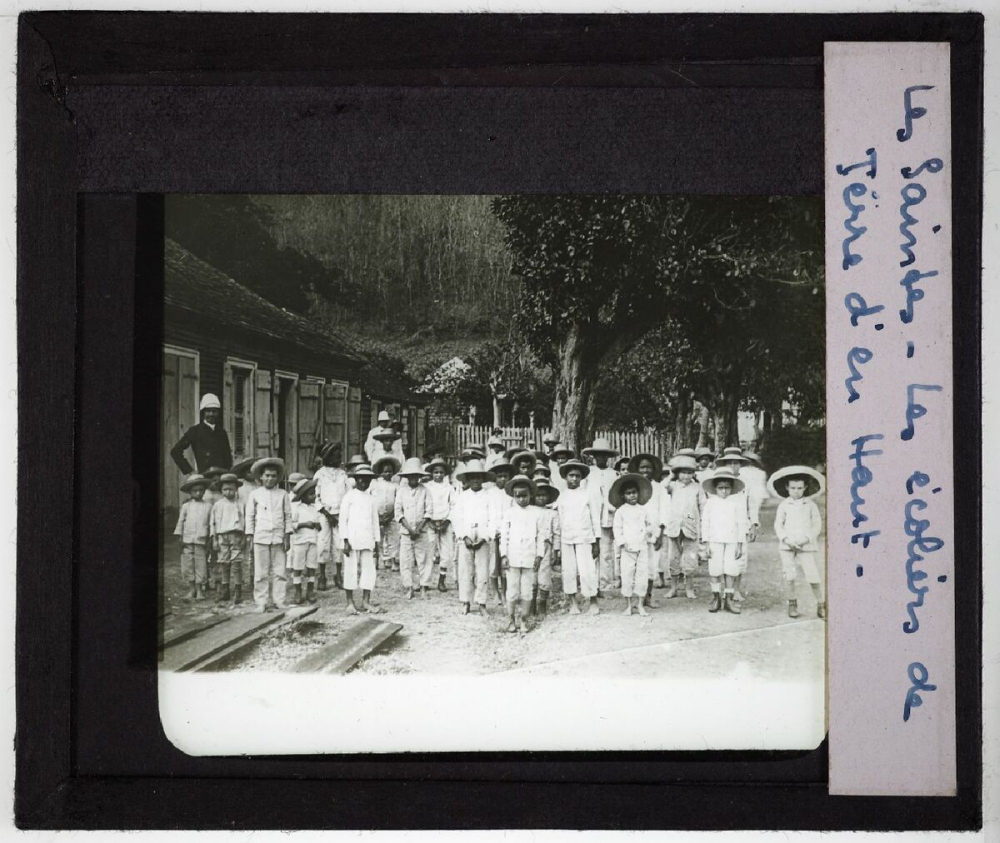 Les Saintes - Les écoliers de
Terre d'en Haut -